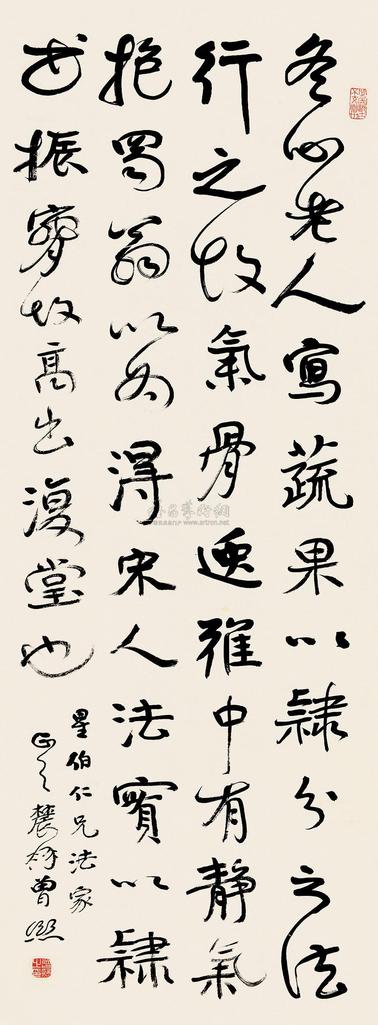 冬心老人寫蔬果以隸分之法
行之故氣骨遒雅中有靜氣
抱蜀翁以為得宋人法實以隸
振故高出復堂也
星伯仁兄法家
正之農髯曾熙
www.artron.net